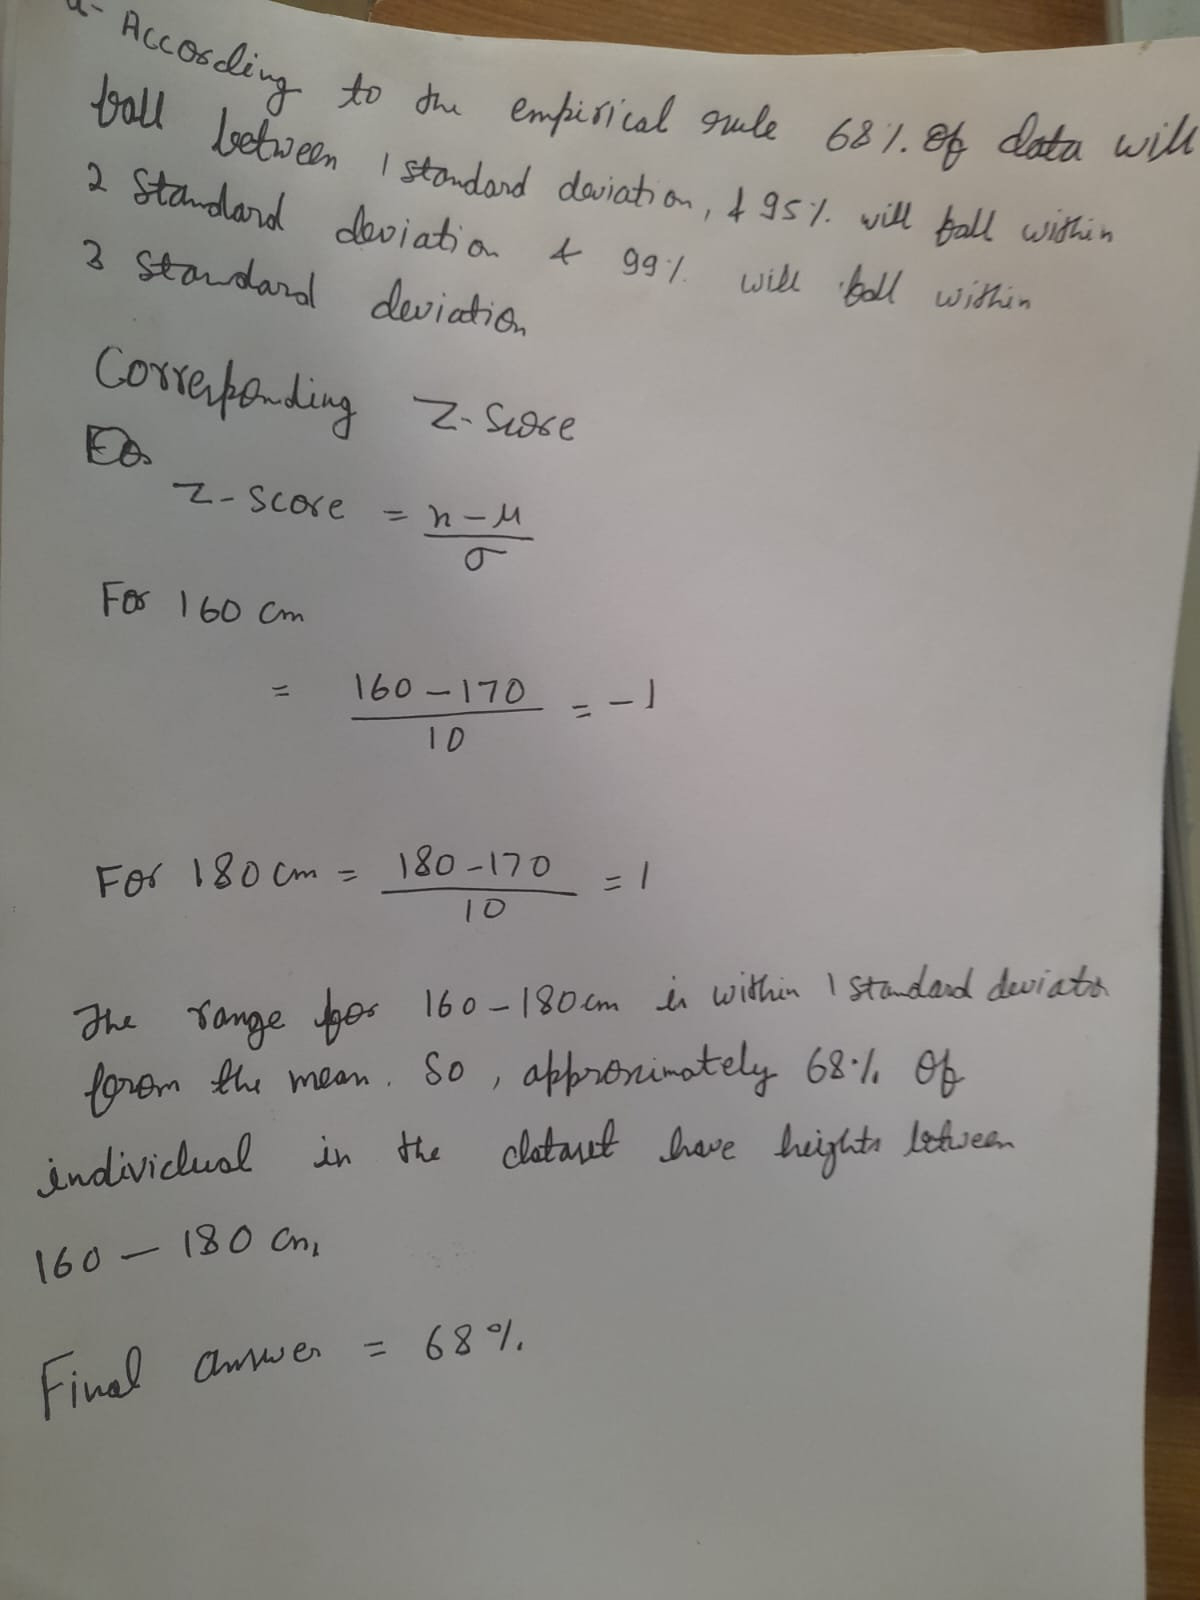 According to the empirical rule 68%. of data will
fall between 1 standard deviation, & 95%. will fall within
2 Standard deviation & 99% will fall within
3 standard deviation
Corresponding Z-Score
Z-Score = x-μ
σ
For 160 cm
= 160-170 = -1
10
For 180 cm = 180-170 = 1
10
The range for 160-180 cm is within 1 standard deviato
from the mean. So, approximately 68%. of
individual in the dataset have heights between
160 — 180 cm.
Final answer = 68%.